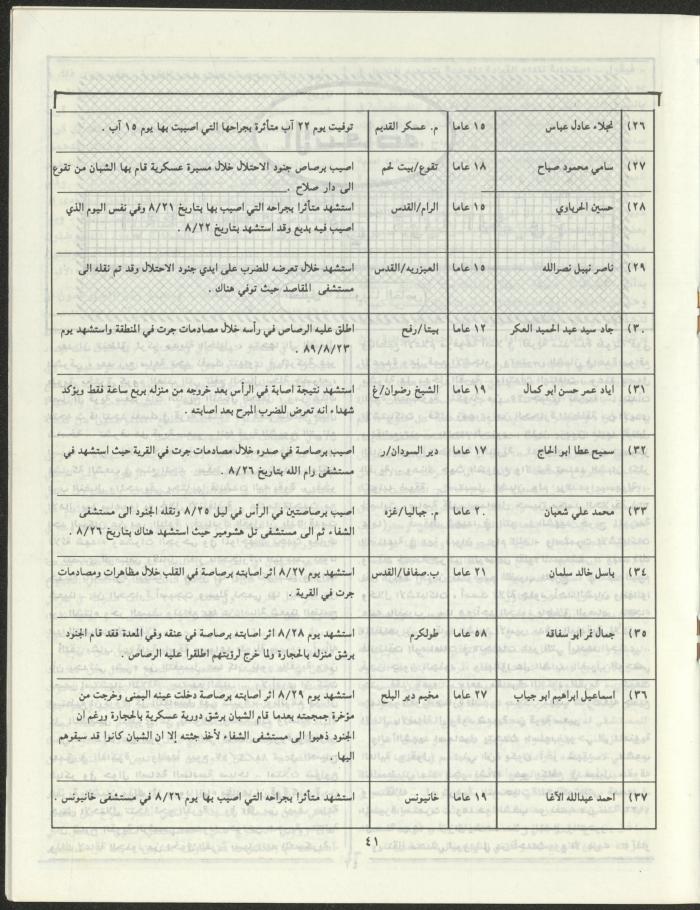 ٢٦) نجلاء عادل عباس ١٥ عاما م. عسكر القديم توفيت يوم ٢٢ آب متأثرة بجراحها التي اصيبت بها يوم ١٥ آب .
٢٧) سامي محمود صباح ١٨ عاما تقوع/بيت لحم اصيب برصاص جنود الاحتلال خلال مسيرة عسكرية قام بها الشبان من تقوع
الى دار صلاح .
٢٨) حسين الحرباوي ١٥ عاما الرام/القدس استشهد متأثرا بجراحه التي اصيب بها بتاريخ ٨/٢١ وفي نفس اليوم الذي
اصيب فيه بديع وقد استشهد بتاريخ ٨/٢٢ .
٢٩) ناصر نبيل نصرالله ١٥ عاما العيزريه/القدس استشهد خلال تعرضه للضرب على ايدي جنود الاحتلال وقد تم نقله الى
مستشفى المقاصد حيث توفي هناك .
٣٠) جاد سيد عبد الحميد العكر ١٢ عاما بيتا/رفح اطلق عليه الرصاص في رأسه خلال مصادمات جرت في المنطقة واستشهد يوم
٨٩/٨/٢٣ .
٣١) اياد عمر حسن ابو كمال ١٩ عاما الشيخ رضوان/غ استشهد نتيجة اصابة في الرأس بعد خروجه من منزله بربع ساعة فقط ويؤكد
شهداء انه تعرض للضرب المبرح بعد اصابته .
٣٢) سميح عطا ابو الحاج ١٧ عاما دير السودان/ر اصيب برصاصة في صدره خلال مصادمات جرت في القرية حيث استشهد في
مستشفى رام الله بتاريخ ٨/٢٦ .
٣٣) محمد علي شعبان ٢٠ عاما م. جباليا/غزه اصيب برصاصتين في الرأس في ليل ٨/٢٥ ونقله الجنود الى مستشفى
الشفاء ثم الى مستشفى تل هشومير حيث استشهد هناك بتاريخ ٨/٢٦ .
٣٤) باسل خالد سلمان ٢١ عاما ب.صفافا/القدس استشهد يوم ٨/٢٧ اثر اصابته برصاصة في القلب خلال مظاهرات ومصادمات
جرت في القرية .
٣٥) جمال نمر ابو سفاقه ٥٨ عاما طولكرم استشهد يوم ٨/٢٨ اثر اصابته برصاصة في عنقه وفي المعدة فقد قام الجنود
برشق منزله بالحجارة ولما خرج لرؤيتهم اطلقوا عليه الرصاص .
٣٦) اسماعيل ابراهيم ابو جياب ٢٧ عاما مخيم دير البلح استشهد يوم ٨/٢٩ اثر اصابته برصاصة دخلت عينه اليمنى وخرجت من
مؤخرة جمجمته بعدما قام الشبان برشق دورية عسكرية بالحجارة ورغم أن
الجنود ذهبوا الى مستشفى الشفاء لأخذ جثته إلا ان الشبان كانوا قد سبقوهم
اليها .
٣٧) احمد عبدالله الآغا ١٩ عاما خانيونس استشهد متأثرا بجراحه التي اصيب بها يوم ٨/٢٦ في مستشفى خانيونس .
٤١